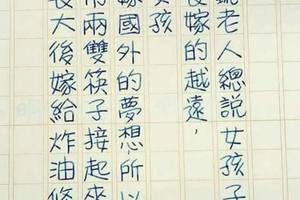 老人總說女孩子
嫁的越遠,
女孩
嫁國外的夢想,所以
兩雙筷子接起來
長大後嫁給炸油條